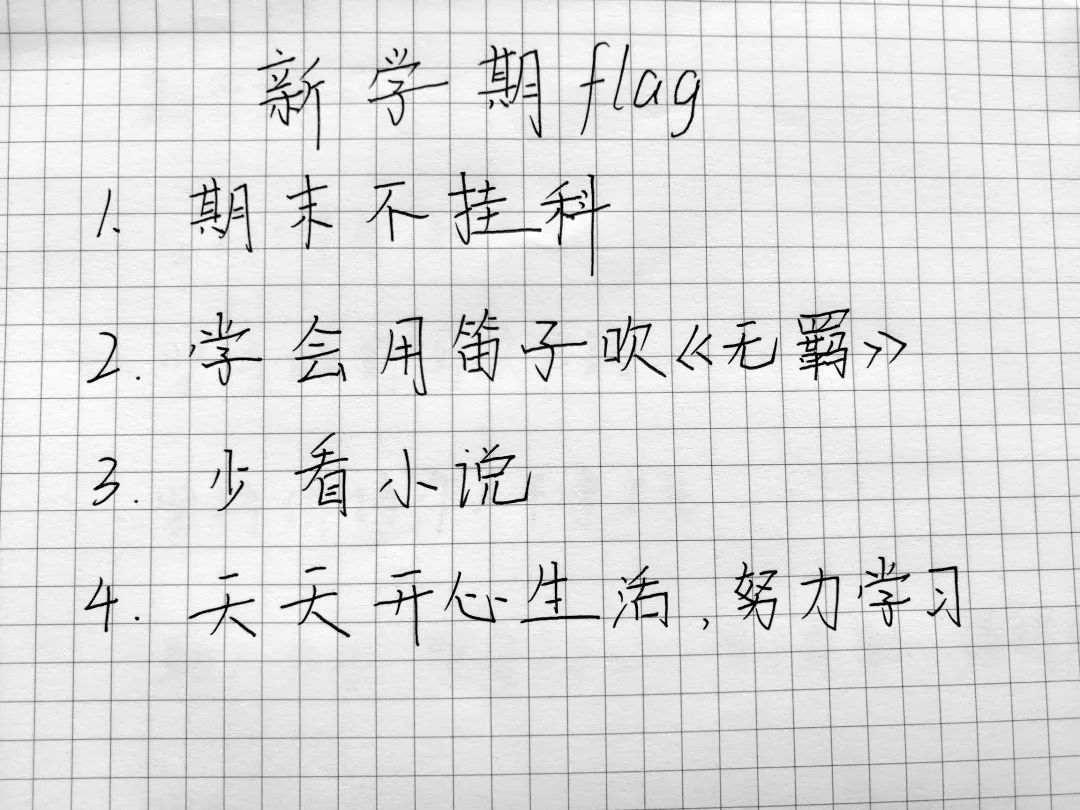 新学期flag
1. 期末不挂科
2. 学会用笛子吹《无羁》
3. 少看小说
4. 天天开心生活,努力学习